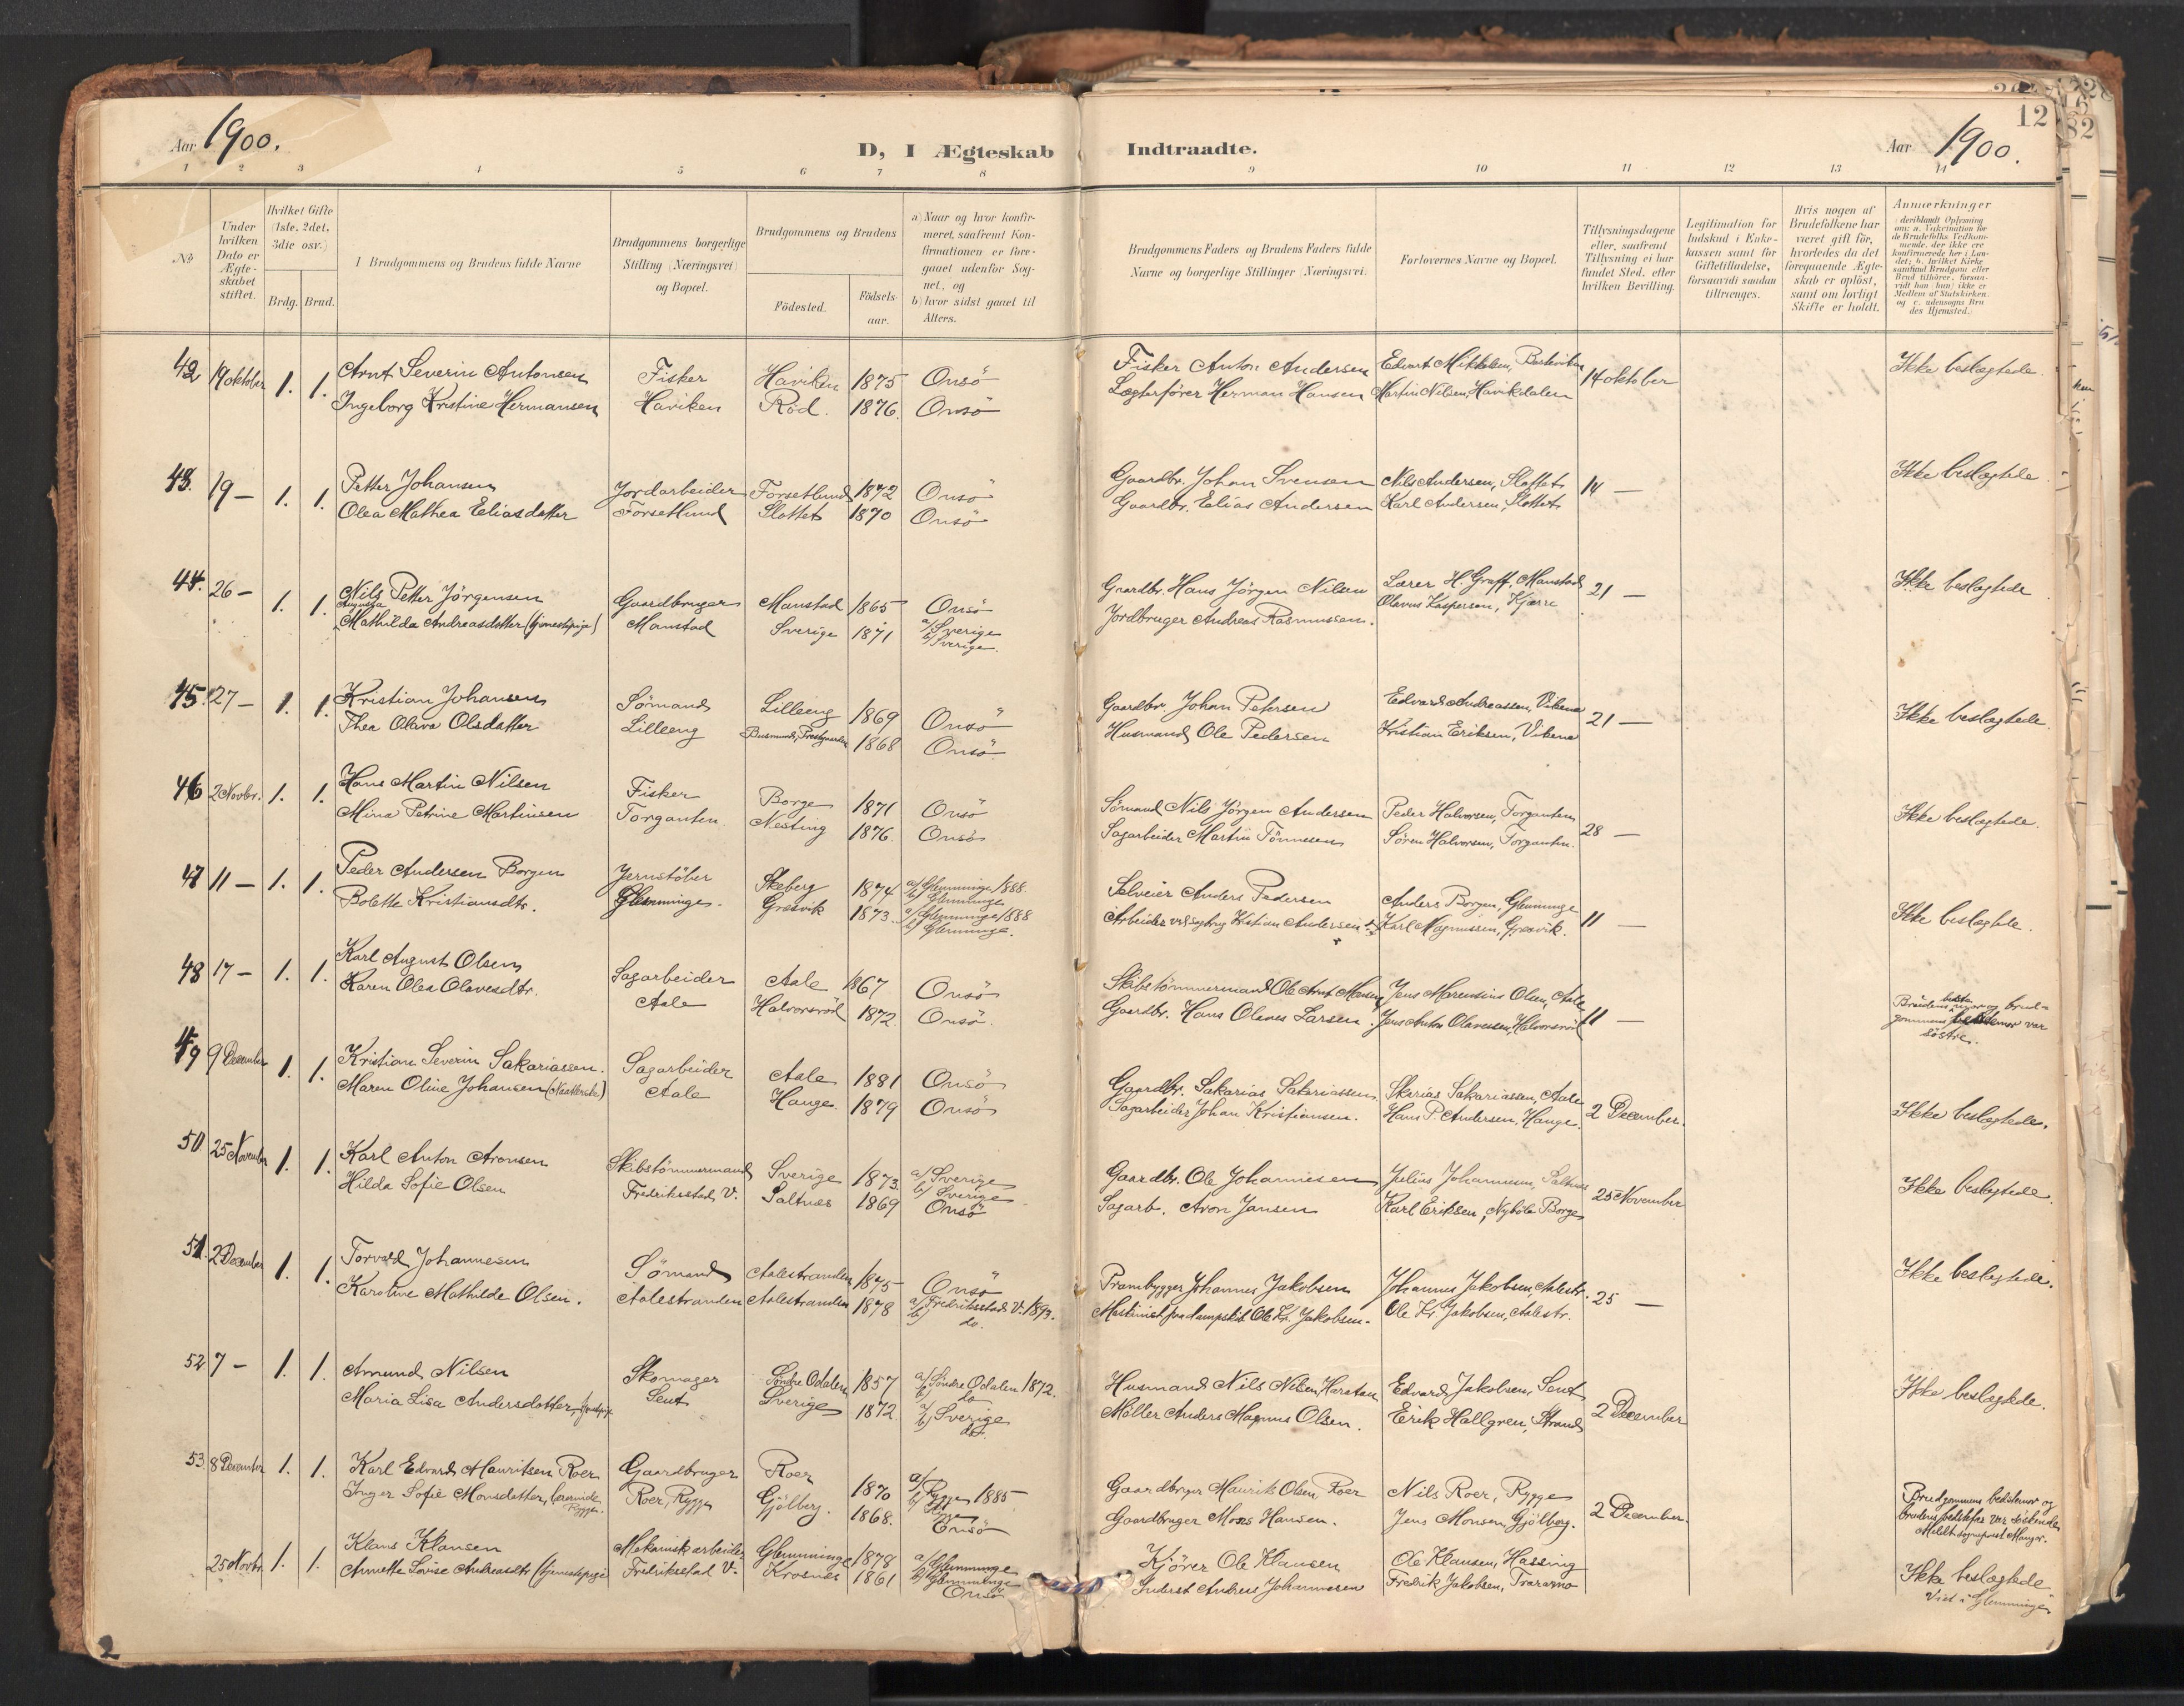 Aar 1900.
D, I Ægteskab Indtraadte.
Aar 1900.
12
1 2 3 4 5 6 7 8 9 10 11 12 13 14
No
Under hvilken Dato er Ægteskabet stiftet.
Hvilket Gifte (1ste, 2det, 3die osv.)
Brdg. Brud.
Brudgommens og Brudens fulde Navne
Brudgommens borgerlige Stilling (Næringsvei) og Bopæl.
Brudgommens og Brudens
Födested. Födselsaar.
a) Naar og hvor konfirmeret, saafremt Konfirmationen er foregaaet udenfor Sognet, og
b) hvor sidst gaaet til Alters.
Brudgommens Faders og Brudens Faders fulde Navne og borgerlige Stillinger (Næringsvei).
Forlovernes Navne og Bopæl.
Tillysningsdagene eller, saafremt Tillysning ei har fundet Sted, efter hvilken Bevilling.
Legitimation for Indskud i Enkekassen samt for Giftetilladelse, forsaavidt saadan tiltrænges.
Hvis nogen af Brudefolkene har været gift för, hvorledes da det foregaaende Ægteskab er oplöst, samt om lovligt Skifte er holdt.
Anmærkninger
(deriblandt Oplysning om: a. Vakcination for de Brudefolks Vedkommende, der ikke ere konfirmerede her i Landet; b. hvilket Kirkesamfund Brudgom eller Brud tilhörer, forsaavidt han (hun) ikke er Medlem af Statskirken, og c. udensogns Brudes Hjemsted.)
42 19 oktober 1. 1. Arnt Severin Antonsen Fisker Haviken 1875 Onsö Fisker Anton Andersen Edvart Mikkelsen, 14 oktober Ikke beslægtede.
Ingeborg Kristine Hermansen Haviken Röd. 1876. Onsö Lægterförer Herman Hansen Martin Nilsen, Havikdalen
43. 19 — 1. 1. Petter Johansen Jordarbeider Forsetlund 1872 Onsö Gaardbr. Johan Svensen Nils Andersen, Slottet 14 — Ikke beslægtede
Olea Mathea Eliasdatter Forsetlund Slottet 1870 Onsö Gaardbr. Elias Andersen Karl Andersen, Slottet
44. 26 — 1. 1. Nils Petter Jörgensen Gaardbruger Manstad 1865 Onsö Gaardbr. Hans Jörgen Nilsen Lærer H. Graff, Manstad 21 — Ikke beslægtede
Augusta
Mathilda Andreasdatter (tjenestepige) Manstad Sverige 1871 a/ Sverige b/ Sverige. Jordbruger Andreas Rasmussen. Olavus Kaspersen, Kjærre
45. 27 — 1. 1. Kristian Johansen Sömand Lilleeng 1869 Onsö Gaardbr. Johan Petersen Edvard Andreassen, Vikene 21 — Ikke beslægtede
Thea Olava Olsdatter Lilleeng Busmund, Prestgaarden 1868 Onsö Husmand Ole Pedersen Kristian Eriksen, Vikene
46 2 Novbr. 1. 1. Hans Martin Nilsen Fisker Borge 1871 Onsö Sömand Nils Jörgen Andersen Peder Halvorsen, Torganten 28 — Ikke beslægtede.
Mina Petrine Martinsen Torganten. Nesting 1876. Onsö Sagarbeider Martin Tönnesen Sören Halvorsen, Torganten.
47 11 — 1. 1. Peder Andersen Borgen Jernstöber Skeberg 1874 a/ Glemminge 1888. b/ Glemminge Selveier Anders Pedersen Anders Borgen, Glemminge 11 — Ikke beslægtede.
Bolette Kristiansdtr. Glemminge. Gresvik 1873. a/ Glemminge 1888 b/ Glemminge. Arbeider ved Sagbrug Kristian Andersen Karl Magnussen, Gresvik.
48 17 — 1. 1. Karl August Olsen Sagarbeider Aale 1867 Onsö Skibstömmermand Ole Arnt Jens Marensius Olsen, Aale 11 —
Karen Olea Olavesdtr. Aale Halvorsröd 1872 Onsö. Gaardbr. Hans Olaves Larsen. Jens Anton Olavesen, Halvorsröd
Brudens bestemor og brudgommens bestemor var söstre.
49 9 December 1. 1. Kristian Severin Sakariassen. Sagarbeider Aale 1881 Onsö Gaardbr. Sakarias Sakariassen. Skarias Sakariassen, Aale 2 December. Ikke beslægtede.
Maren Oline Johansen Aale Hauge. 1879 Onsö Sagarbeider Johan Kristiansen. Hans P. Andersen, Hauge.
50 25 November 1. 1. Karl Anton Aronsen Skibstömmermand Sverige 1873. a/ Sverige b/ Sverige Gaardbr. Ole Johannesen Julius Johannesen, Saltnes 25 November Ikke beslægtede.
Hilda Sofie Olsen Fredriksstad V. Saltnes 1869 Onsö Sagarb. Aron Jansen Karl Eriksen, Borge
51. 2 December 1. 1. Torvald Johannesen Sömand Aalestranden 1875 Onsö Prambygger Johannes Jakobsen Johannes Jakobsen, Aalestr. 25 — Ikke beslægtede.
Karoline Mathilde Olsen. Aalestranden Aalestranden 1878 a/ Fredriksstad V. 1893. b/ do. Maskinist paa dampskib Ole Kr. Jakobsen. Ole Kr. Jakobsen, Aalestr.
52 7 — 1. 1. Amund Nilsen Skomager Söndre Odalen 1857 a/ Söndre Odalen 1872. b/ do Husmand Nils Nilsen, Edvard Jakobsen, Leut 2 December Ikke beslægtede.
Maria Lisa Andersdotter, Leut Sverige 1872. a/ Sverige b/ do. Möller Anders Magnus Olsen. Erik Hallgren, Strand
53. 8 December 1. 1. Karl Edvard Mauritsen Roer Gaardbruger Roer 1870 a/ Rygge 1885 b/ Rygge Gaardbruger Maurits Olsen Roer Nils Roer, Rygge 2 December.
Inger Sofie Monsdatter, Rygge. Roer, Rygge Gjölberg. 1868. Onsö Gaardbruger Mons Hansen. Jens Monsen, Gjölberg.
Brudgommens bedstemor og brudens bedstefar var söskende.
25 Novbr. 1. 1. Klaus Klausen Mekanisk arbeider Glemminge 1878 a/ Glemminge b/ Glemminge Kjörer Ole Klausen Ole Klausen, Hassing Ikke beslægtede
Annette Lovise Andreasdtr (tjenestepige) Fredriksstad V. Krosnes 1861 Onsö Inderst Andreas Johannesen Fredrik Jakobsen, Traramo Viet i Glemminge